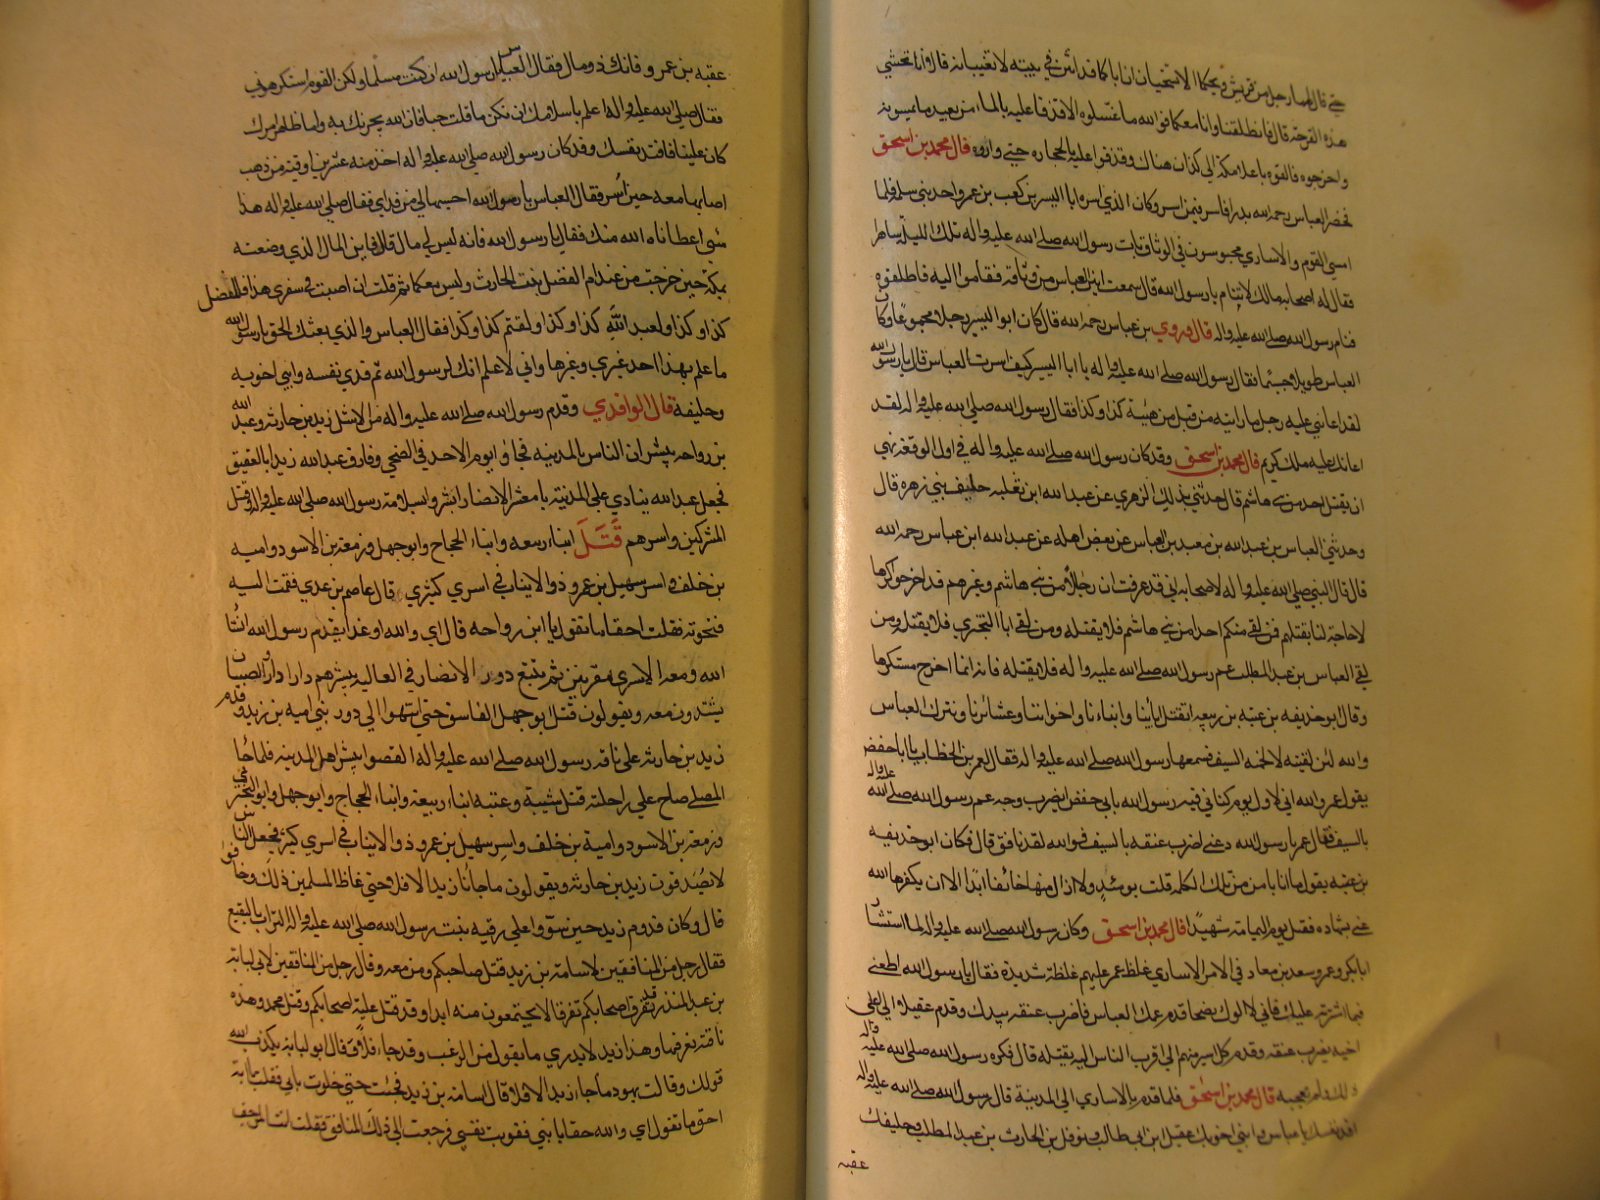 حتى قال لهما رجل من قريش ويحكما الا تستحيان ان اباكما قد انتن في بيته لا تغيبانه قالا انا نخشى
هذه القرحة قال فانطلقا وانا معكما فوالله ما غسلوه الا قذفا عليه بالماء من بعيد ما يمسونه
واخرجوه فالقوه باعلا مكة الى كنان هناك وقذفوا عليه بالحجارة حتى واروه قال محمد بن اسحق
فحضر العباس رحمه الله بدرا فاسر فيمن اسر وكان الذي اسره ابا اليسر بن كعب بن عمرو احد بني سلمة فلما
امسى القوم والاسارى محبوسون في الوثاق بات رسول الله صلى الله عليه واله تلك الليلة ساهرا
فقال له اصحابه مالك لا تنام يا رسول الله قال سمعت انين العباس من وثاقه فقاموا اليه فاطلقوه
فنام رسول الله صلى الله عليه واله قال وروي بن عباس رحمه الله قال كان ابو اليسر رجلا مجموعا وكان
العباس طويلا جسيما فقال رسول الله صلى الله عليه واله يا ابا اليسر كيف اسرت العباس قال يا رسول الله
لقد اعانني عليه رجل ما رايته من قبل من هيئته كذا وكذا فقال رسول الله صلى الله عليه واله لقد
اعانك عليه ملك كريم قال محمد بن اسحق وقد كان رسول الله صلى الله عليه واله في اول الوقعة نهى
ان يقتل احد من بني هاشم قال حدثني بذلك الزهري عن عبد الله ابن ثعلبه حليف بني زهره قال
وحدثني العباس بن عبد الله بن معبد بن العباس عن بعض اهله عن عبد الله ابن عباس رحمه الله
قال قال النبي صلى الله عليه واله لاصحابه اني قد عرفت ان رجالا من بني هاشم وغيرهم قد اخرجوا كرها
لا حاجة لنا بقتلهم فمن لقى منكم احدا من بني هاشم فلا يقتله ومن لقى ابا البختري فلا يقتله ومن
لقى العباس بن عبد المطلب عم رسول الله صلى الله عليه واله فلا يقتله فانه انما اخرج مستكرها
وقال ابو حذيفه بن عتبه بن ربيعه انقتل ابائنا وابناءنا واخواننا وعشائرنا ونترك العباس
والله لئن لقيته لالحمنه السيف فسمعها رسول الله صلى الله عليه واله فقال لعمر بن الخطاب يا ابا حفص
يقول عمر والله انه لاول يوم كناني فيه رسول الله بابي حفص ايضرب وجه عم رسول الله صلى الله عليه واله
بالسيف فقال عمر يا رسول الله دعني اضرب عنقه بالسيف فوالله لقد نافق قال فكان ابو حذيفه
بن عتبه يقول ما انا بامن من تلك الكلمه قلت يومئذ ولا ازال منها خائفا ابدا الا ان يكفرها الله
عني بشهاده فقتل يوم اليمامة شهيدا قال محمد بن اسحق وكان رسول الله صلى الله عليه واله لما استشار
ابا بكر وعمر وسعد بن معاد في الامر الاسارى غلظ عمر عليهم غلظة شديدة فقال يا رسول الله اطعني
فيما اشرت عليك فاني لا الوك نصحا قدم عمك العباس فاضرب عنقه بيدك وقدم عقيلا الى على
اخيه يضرب عنقه وقدم كل اسير منهم الى اقرب الناس اليه يقتله قال فكره رسول الله صلى الله عليه واله
ذلك ولم يعجبه قال محمد بن اسحق فلما قدم بالاسارى الى المدينة قال رسول الله صلى الله عليه واله
افد نفسك يا عباس وابني اخويك عقيل ابن ابي طالب ونوفل بن الحارث بن عبد المطلب وحليفك
عقبه
عقبه بن عمرو فانك ذو مال فقال العباس يا رسول الله اني كنت مسلما ولكن القوم استكرهوني
فقال صلى الله عليه واله الله اعلم باسلامك ان يكن ما قلت حقا فان الله يجزيك به واما ظاهر امرك
كان علينا فافتد نفسك وقد كان رسول الله صلى الله عليه واله اخذ منه عشرين اوقية من ذهب
اصابها معه حين اسر فقال العباس يا رسول الله احسبها لي من فداي فقال صلى الله عليه واله هذا
شي اعطاناه الله منك فقال يا رسول الله فانه ليس لي مال قال فاين المال الذي وضعته
بمكة حين خرجت من عند ام الفضل بنت الحارث وليس معكما ثم قلت ان اصبت في سفري هذا فللفضل
كذا وكذا ولعبد الله كذا وكذا ولقثم كذا وكذا فقال العباس والذي بعثك بالحق يا رسول الله
ما علم بهذا احد غيري وغيرها واني لاعلم انك لرسول الله ثم فدى نفسه وابني اخويه
وحليفه قال الواقدي وقدم رسول الله صلى الله عليه واله من الاثيل زيد بن حارثه وعبد الله
بن رواحه يبشران الناس بالمدينه فجاؤا يوم الاحد في الضحى وفارق عبد الله زيدا بالعقيق
فجعل عبد الله ينادي على المدينة يا معشر الانصار ابشروا بسلامة رسول الله صلى الله عليه واله وقتل
المشركين واسرهم قتل ابناء ربيعه وابناء الحجاج وابو جهل وزمعة بن الاسود واميه
بن خلف واسر سهيل بن عمرو ذو الانياب في اسرى كثيرى قال عاصم بن عدي فقمت اليه
فنحوته فقلت احقا ما تقول يا ابن رواحه قال اي والله او غدا يقدم رسول الله انشا
الله ومعه الاسرى مقرنين ثم يتبع دور الانصار في العاليه يبشرهم دارا دارا والصبيان
يشتدون معه ويقولون قتل ابو جهل الفاسق حتى انتهوا الى دور بني اميه بن زيد وقدم
زيد بن حارثه على ناقه رسول الله صلى الله عليه واله القصوا يبشر اهل المدينه فلما جا
المصلى صاح على راحلته قتل شيبة وعتبه ابناء ربيعة وابناء الحجاج وابو جهل وابو البختري
وزمعة بن الاسود وامية بن خلف واسر سهيل بن عمرو ذو الانياب في اسرى كثير فجعل الناس
لا يصدقون زيد بن حارثه ويقولون ما جانا زيد الا فلا حتى غاظ المسلمين ذلك وخافوا
قال وكان قدوم زيد حين سووا على رقيه بنت رسول الله صلى الله عليه واله التراب بالبقيع
فقال رجل من المنافقين لاسامة بن زيد قتل صاحبكم ومن معه وقال رجل من المنافقين لابي لبابة
بن عبد المنذر قد تفرق اصحابكم تفرقا لا يجتمعون منه ابدا وقد قتل علية اصحابكم وقتل محمد وهذه
ناقته نعرفها وهذا زيد لا يدري ما يقول من الرعب وقد جاء فلا قال ابو لبابه يكذب الله
قولك وقالت يهود ما جاء زيد الا فلا قال اسامة بن زيد فجئت حتى خلوت بابي فقلت يا ابة
احق ما تقول اي والله حقا يا بني فقويت نفسي فرجعت الى ذلك المنافق فقلت انت المرجف